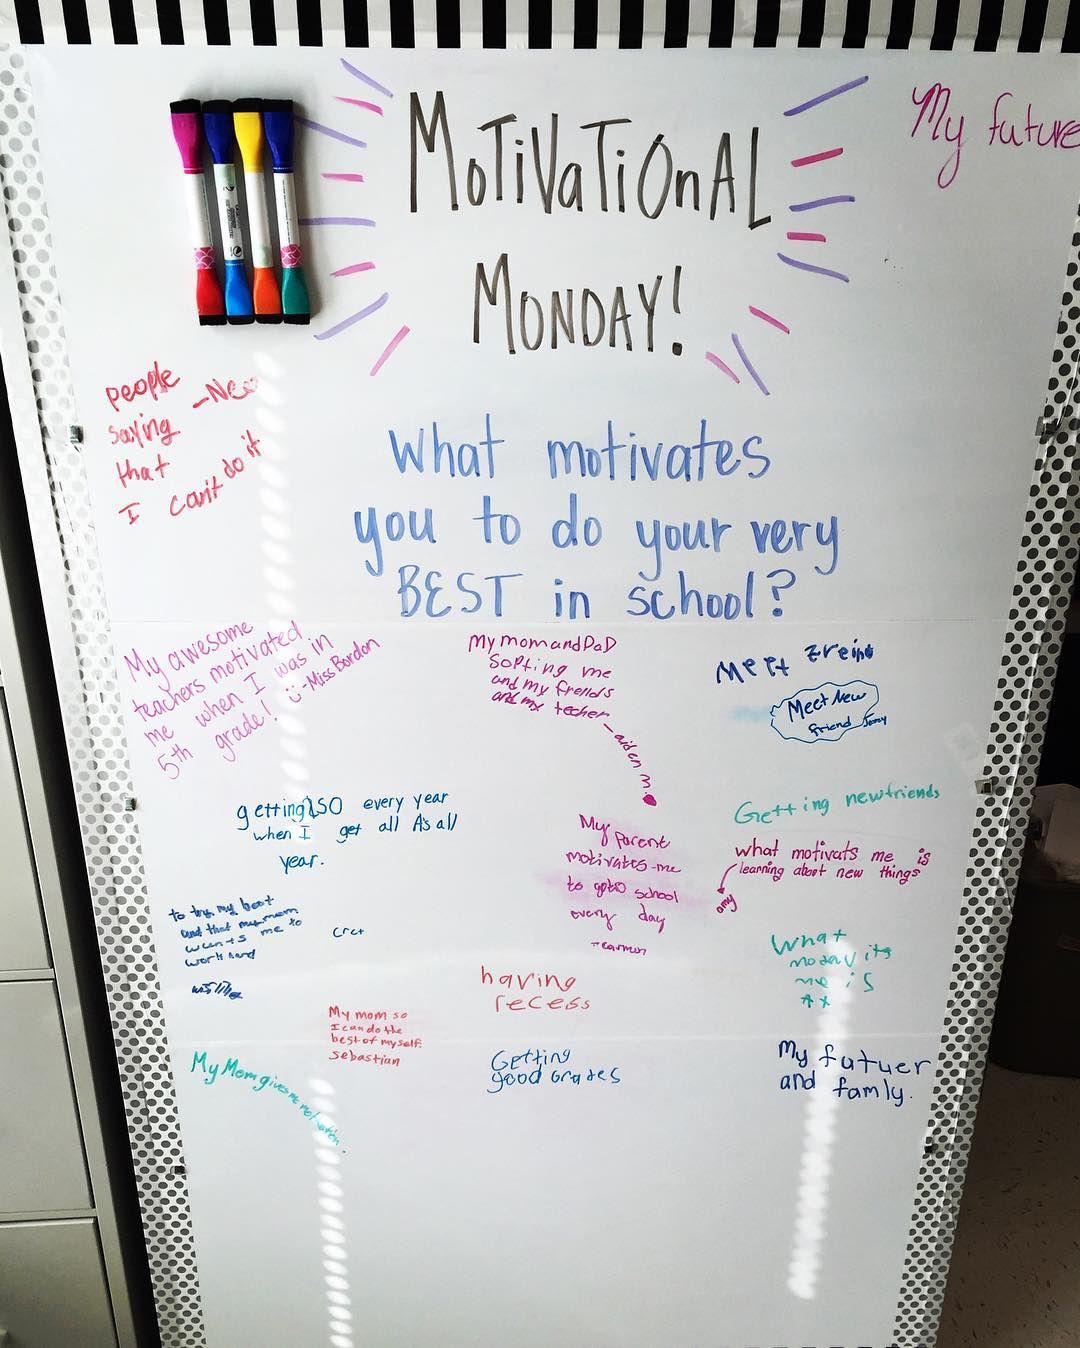 MOTiVATiOnAL
MONDAY!
My future
people
saying
that
I can't do it
What motivates
you to do your very
BEST in school?
My awesome
teachers motivated
me when I was in
5th grade! :) -Miss Bordon
My mom and DaD
SoPting me
and my frends
and my techer
-aiden m.
Meet
Meet New
friend
getting $50 every year
when I get all A's all
year.
My parent
motivates me
to school
every day
Getting newfriends
what motivats me is
learning about new things
amy
to try my best
and that my mom
wants me to
work hard
having
recess
What
me is
My mom so
I can do the
best of my self.
Sebastian
My Mom gives me motivation.
Getting
good Grades
My futuer
and famly.